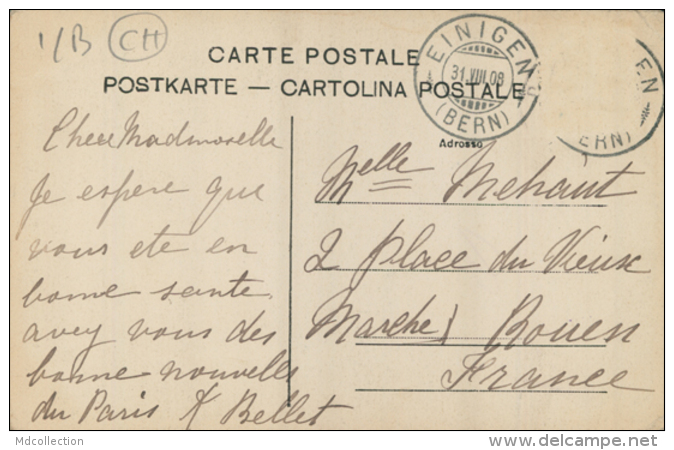 1/B CH
CARTE POSTALE
POSTKARTE — CARTOLINA POSTALE
EINIGEN
31.VIII.08
(BERN)
EN
ERN)
Adresse
Chere Madmoselle
Je espere que
vous ete en
bonne sante
avey vous des
bonne nouvells
du Paris X Bellet
Melle Mehaut
2 place du Vieux
Marche Rouen
France
Mdcollection
www.delcampe.net